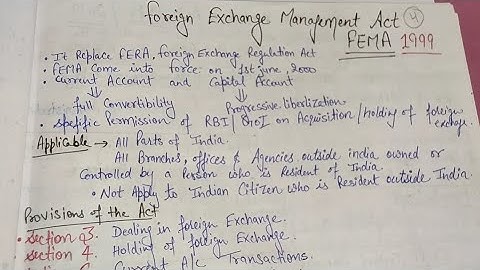 foreign Exchange Management Act 4
FEMA 1999
• It Replace FERA, foreign Exchange Regulation Act
• FEMA Come into force on 1st June, 2000
• Current Account and Capital Account
full Convertibility Progressive liberlization
• Spefific Permission of RBI/GoI on Acquisition/holding of foreign exchange.
Applicable → All Parts of India.
All Branches, offices & Agencies outside india owned or
Controlled by a Person who is Resident of India.
• Not Apply to Indian Citizen who is Resident outside India.
Provisions of the Act
• Section 3. Dealing in foreign Exchange.
Section 4. Holding of foreign Exchange.
Current A/c Transactions.